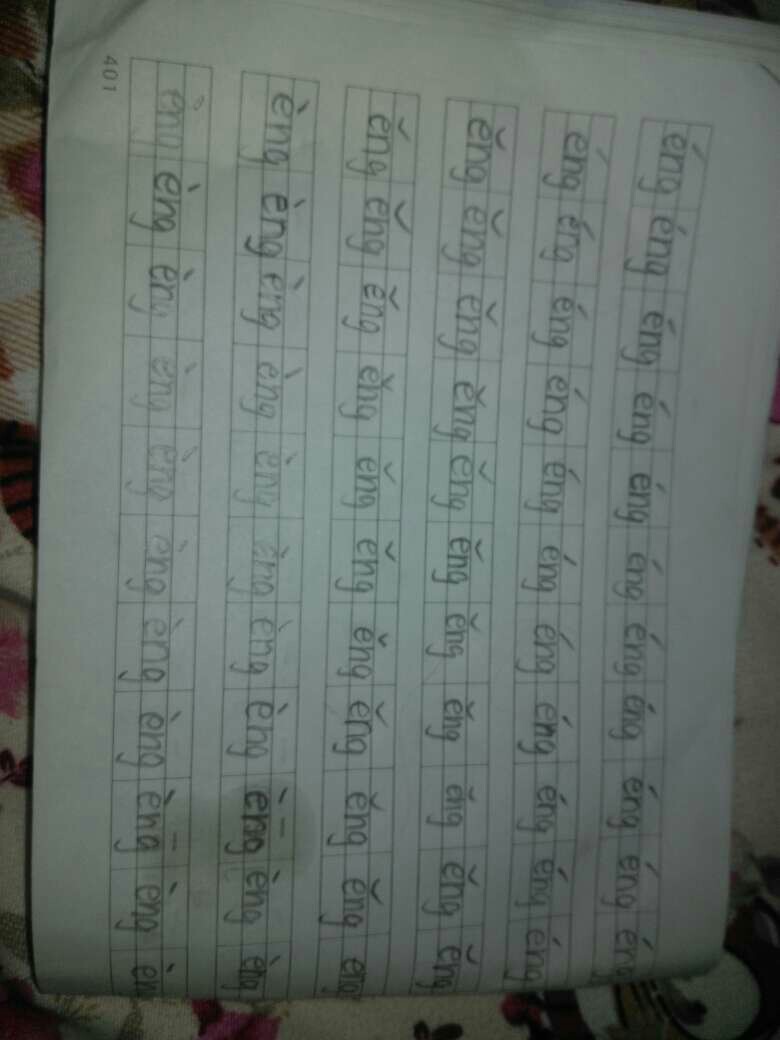 éng éng éng éng éng éng éng éng éng éng éng
éng éng éng éng éng éng éng éng éng éng éng
ěng ěng ěng ěng ěng ěng ěng ěng ěng ěng ěng
ěng ěng ěng ěng ěng ěng ěng ěng ěng ěng eng
èng èng èng èng èng èng èng èng èng èng èng
èng èng èng èng èng èng èng èng èng èng èn
401